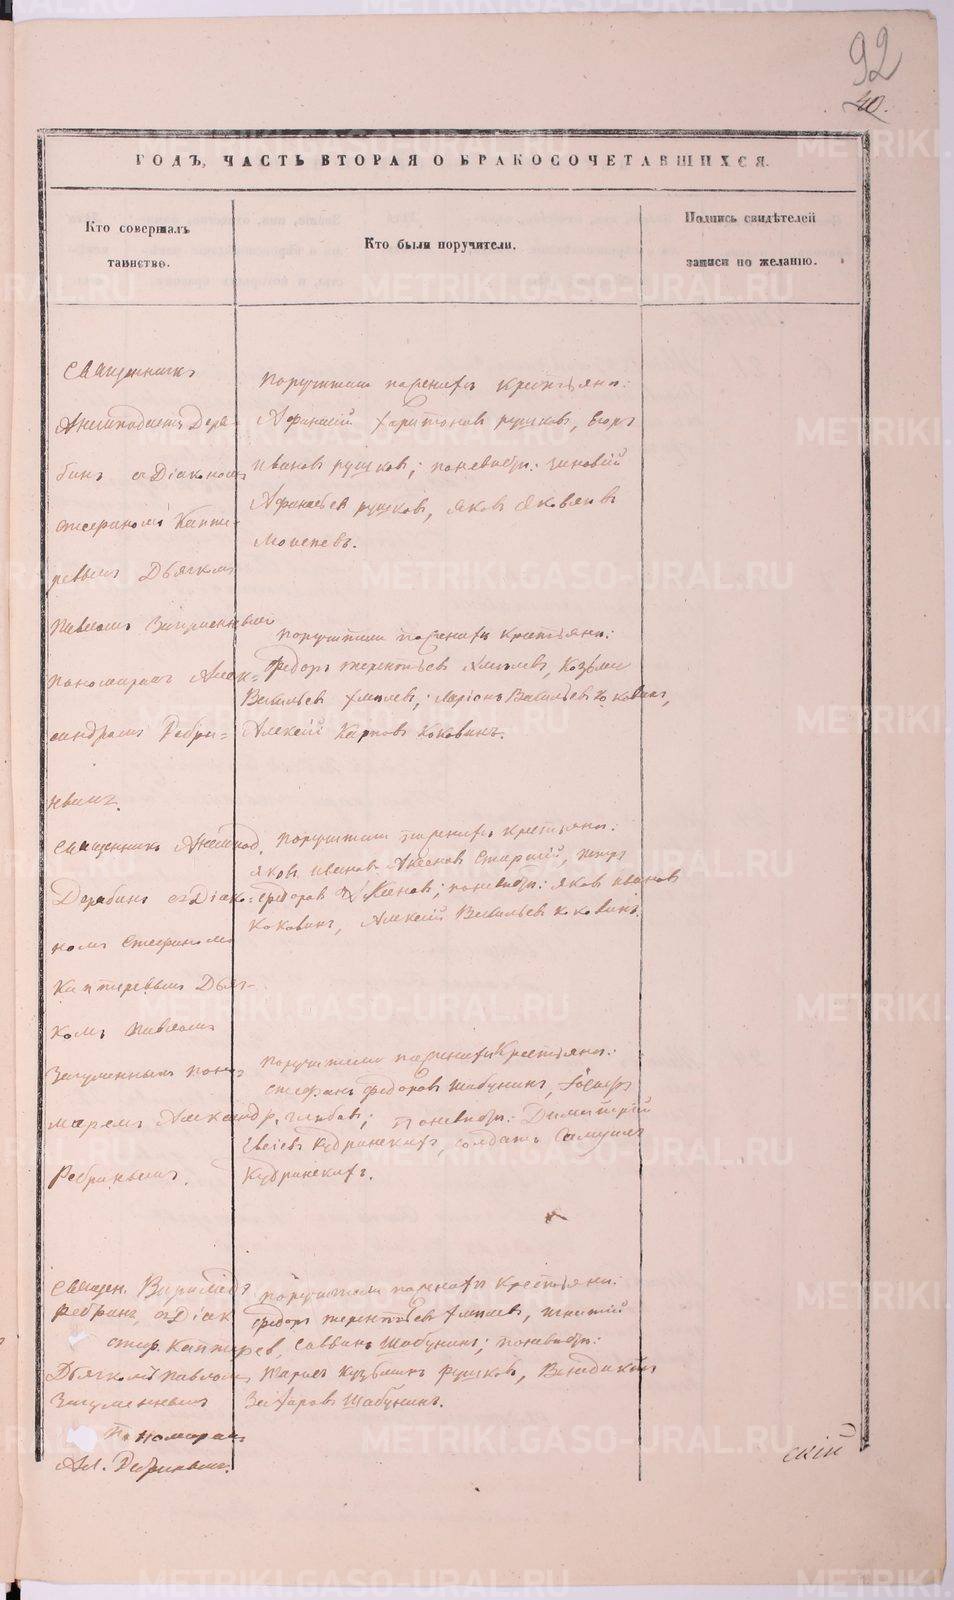 92
40.
ГОДЪ, ЧАСТЬ ВТОРАЯ О БРАКОСОЧЕТАВШИХСЯ.
Кто совершалъ
таинство.
Кто были поручители.
Подпись свидѣтелей
записи по желанію.
Священникъ
Дера-
бинъ съ Діакономъ
Стефаномъ Капте-
ревымъ Дьячкомъ
Павломъ Загуменнымъ
пономаремъ Алек-
сандромъ Ребри-
нымъ.
поручители по женихѣ крестьяне:
Афанасій Харитоновъ Рушковъ, Егоръ
Ивановъ Рушковъ; по невѣстѣ: Зиновій
Афанасьевъ Рушковъ, Яковъ Яковлевъ
Моисеевъ.
поручители по женихѣ крестьяне:
Федоръ Терентьевъ Козьма
Васильевъ Ларіонъ Васильевъ Коковинъ,
Алексѣй Карповъ Коковинъ.
Священникъ
Дерабинъ съ Діако-
номъ Стефаномъ
Каптеревымъ Дьяч-
комъ Павломъ
Загуменнымъ поно-
маремъ Александр.
Ребринымъ.
поручители по женихѣ крестьяне:
Яковъ Ивановъ Аксеновъ Старшій, Петръ
Федоровъ по невѣстѣ: Яковъ Ивановъ
Коковинъ, Алексѣй Васильевъ Коковинъ.
поручители по женихѣ крестьяне:
Стефанъ Федоровъ Шабунинъ,
по невѣстѣ: Димитрій
Кудринскихъ, солдатъ Самуилъ
Кудринскихъ.
Священ.
Ребринъ съ Діак.
Стеф. Каптерев.
Дьячкомъ Павломъ
Загуменнымъ
Пономаремъ
Ал. Ребринымъ.
поручители по женихѣ крестьяне:
Федоръ Терентьевъ
Саввинъ Шабунинъ; по невѣстѣ:
Кузьминъ Рушковъ,
Захаровъ Шабунинъ.
скій
METRIKI.GASO-URAL.RU